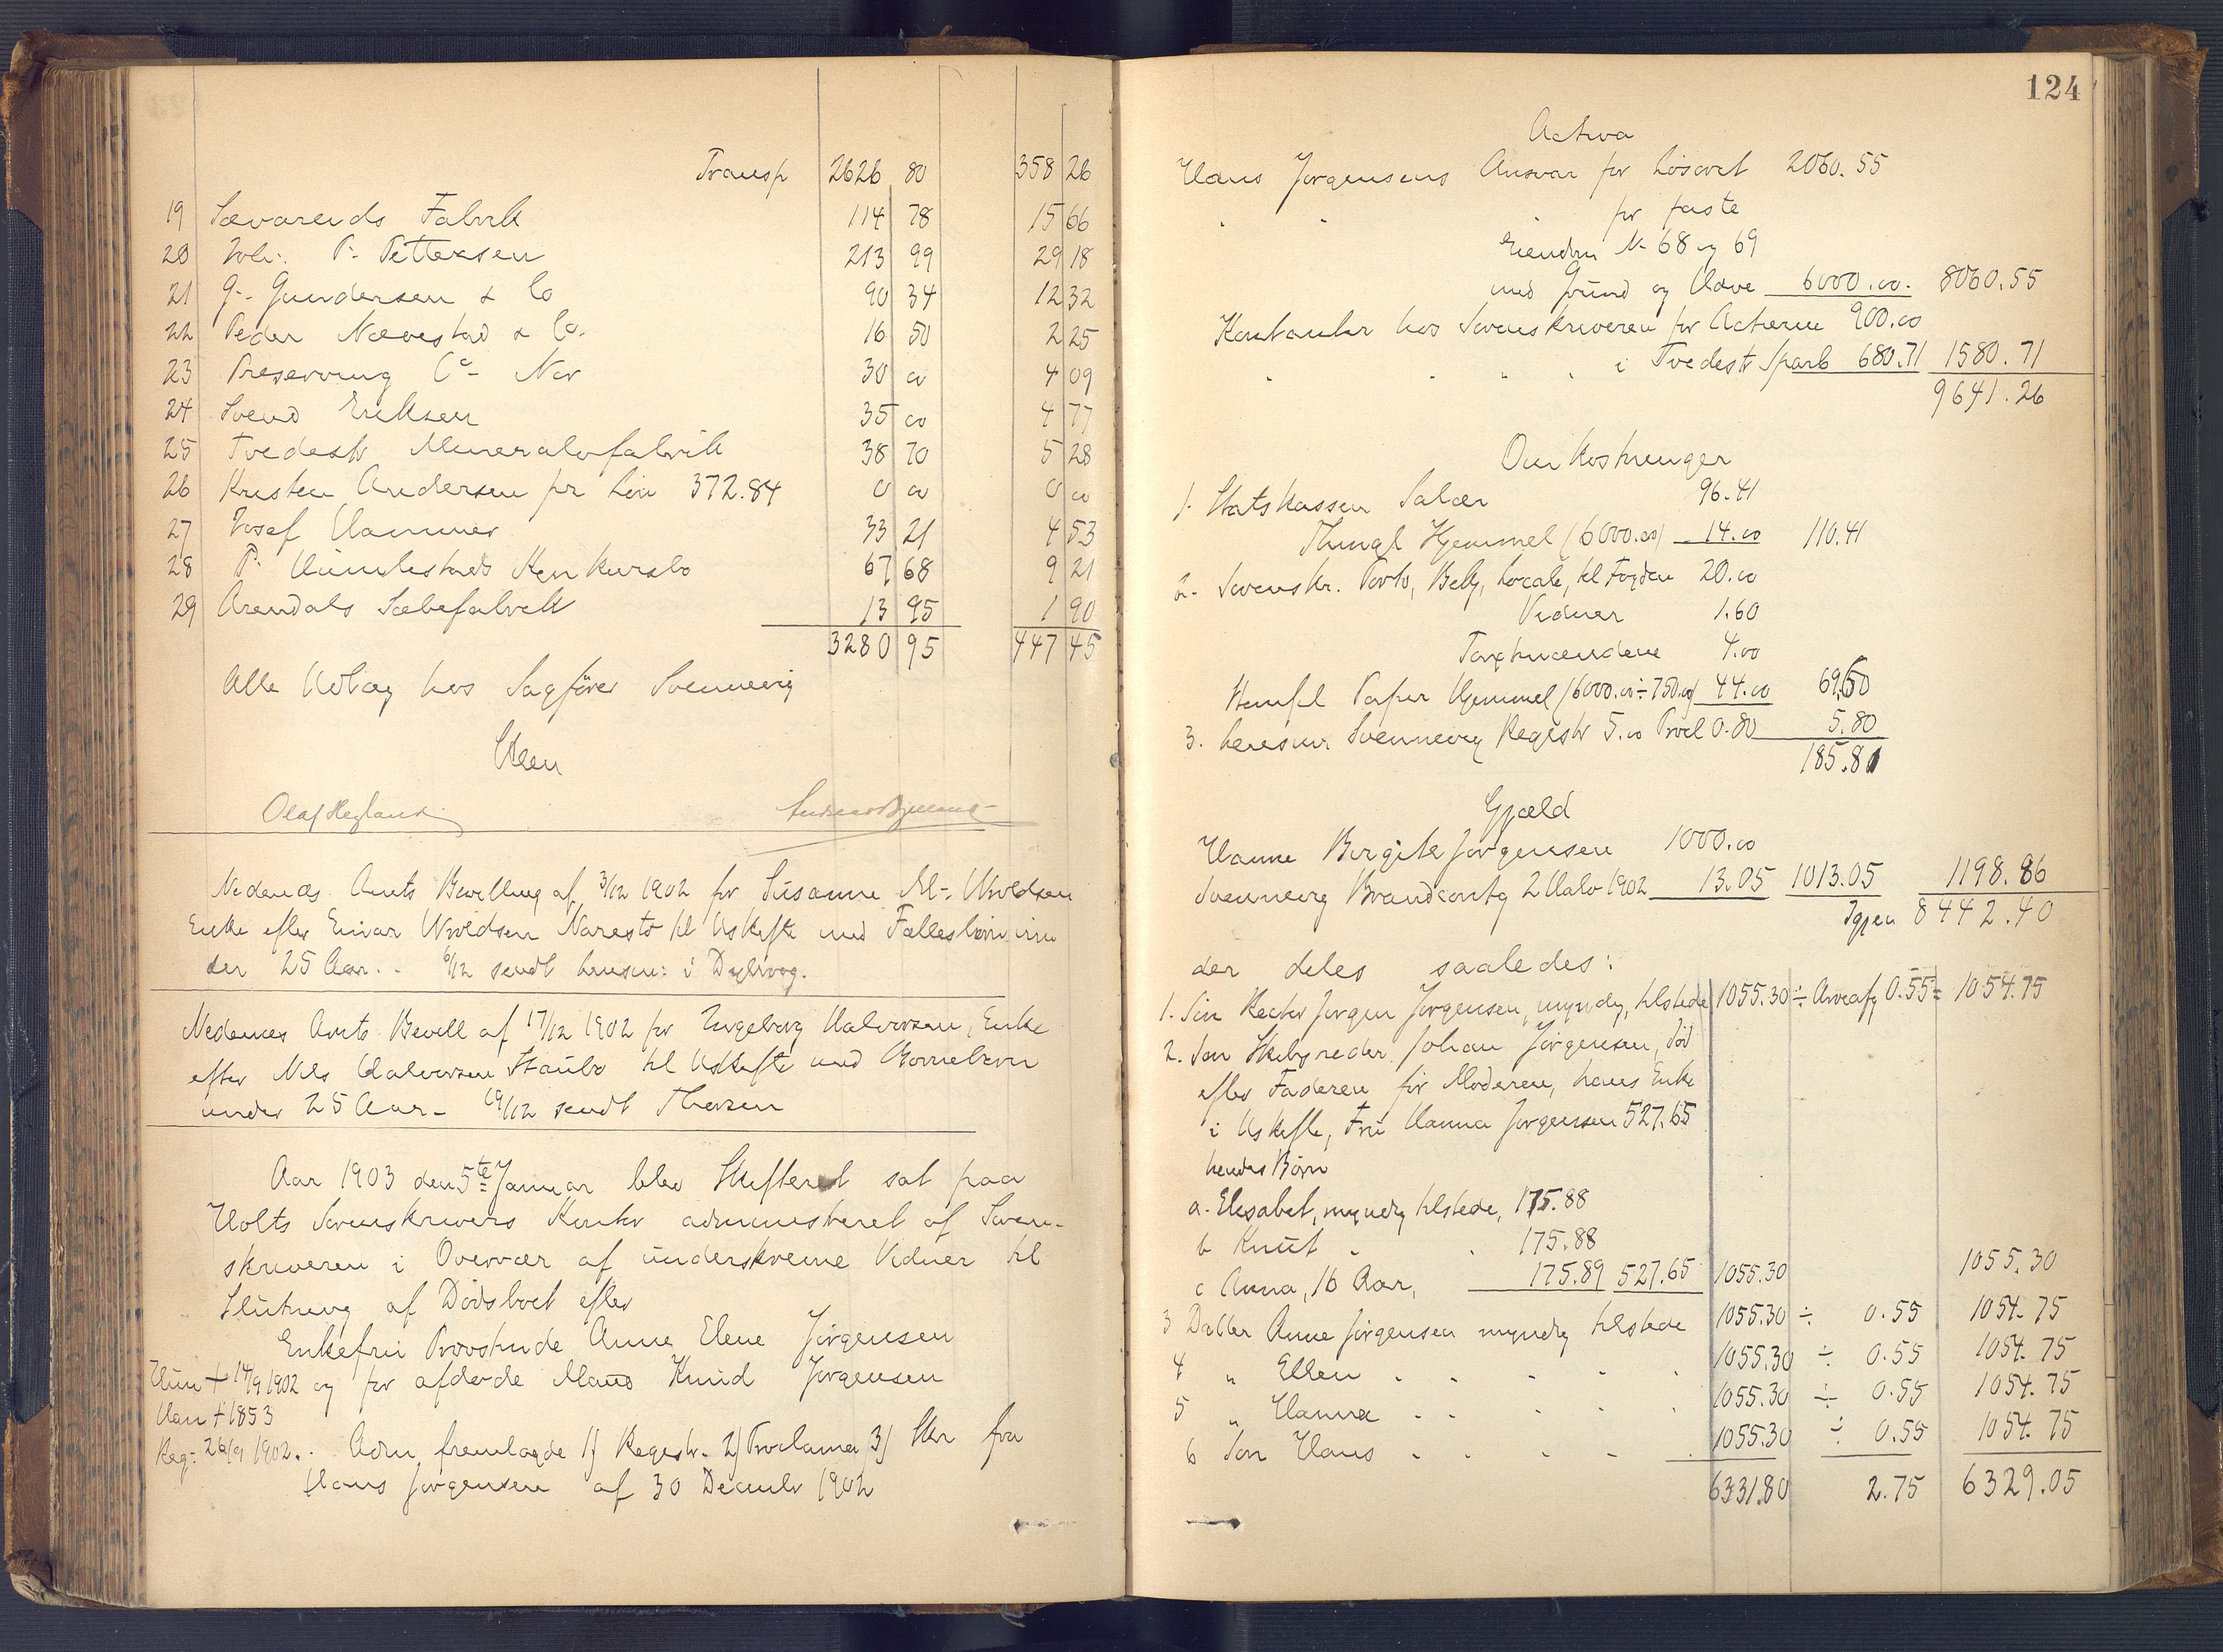 Transp 2626 80 358 26
19 Sævarends Fabrik 114 78 15 66
20 Joh. P. Pettersen 213 99 29 18
21 G. Gundersen & Co 90 34 12 32
22 Peder Nævestad & Co. 16 50 2 25
23 Preserving Co Nor 30 00 4 09
24 Svend Eriksen 35 00 4 77
25 Tvedestr Mineralvfabrik 38 70 5 28
26 Kristen Andersen pr Lön 372.84 0 00 0 00
27 Josef Hammer 33 21 4 53
28 P. Konkursbo 67 68 9 21
29 Arendals Sæbefabrik 13 95 1 90
3280 95 447 45
Alle Udlæg hos Sagfører Svennevig
Olaf Hegland
Nedenæs Amts Bevilling af 3/12 1902 for Susanne M. Uvoldsen
Enke efter Einar Uvoldsen Narestø til Uskifte med Fællesbørn un
der 25 Aar. - 6/12 sendt Lensm: i Dybvaag.
Nedenæs Amts Bevill af 17/12 1902 for Ingeborg Halvorsen, Enke
efter Nils Halvorsen Staubø til Uskifte med
under 25 Aar - 19/12 sendt Thorsen
Aar 1903 den 5te Januar blev Skifteret sat paa
Holts Sorenskrivers Kontor administreret af Soren-
skriveren i Overvær af underskrevne Vidner til
Slutning af Dødsboet efter
Enkefru Provstinde Anne Elene Jørgensen
Hun + 14/9 1902 og før afdøde Mand Knud Jørgensen
Han + 1853
Reg: 26/9 1902. Adm fremlagde 1) Registr. 2) Proclama 3) Skr fra
Hans Jørgensen af 30 Decembr 1902
124
Activa
Hans Jørgensens Ansvar for Løsøret 2060.55
" " " for faste
Eiendom No 68 og 69
med Grund og Have 6000.00. 8060.55
Kontanter hos Sorenskriveren for Actierne 900.00
" " " " i Tvedestr Sparb 680.71 1580.71
9641.26
Omkostninger
1. Statskassen Salær 96.41
Thingl Hjemmel (6000.00) 14.00 110.41
2. Sorenskr. Porto, Bekj, Locale, til Fogden 20.00
Vidner 1.60
Taxtmændene 4.00
Stempl Papir Hjemmel (6000.00÷750.00) 44.00 69.60
3. Lensm Svennevig Registr 5.00 Procl 0.80 5.80
185.81
Gjæld
Hanne Birgitte Jørgensen 1000.00
Svennevig Brandcontg 2 Halv 1902 13.05 1013.05 1198.86
Igjen 8442.40
der deles saaledes:
1. Søn Rector Jørgen Jørgensen, myndig, tilstede 1055.30 ÷ Arveafg 0.55 = 1054.75
2. Søn Skibsreder Johan Jørgensen, død
efter Faderen før Moderen, hans Enke
i Uskifte, Fru Hanna Jørgensen 527.65
hendes Børn
a. Elisabet, myndig tilstede, 175.88
b Knut " " 175.88
c Anna, 16 Aar, 175.89 527.65 1055.30 1055.30
3 Datter Anne Jørgensen myndig tilstede 1055.30 ÷ 0.55 1054.75
4 " Ellen " " " " " 1055.30 ÷ 0.55 1054.75
5 " Hanna " " " " " 1055.30 ÷ 0.55 1054.75
6 Søn Hans " " " " 1055.30 ÷ 0.55 1054.75
6331.80 2.75 6329.05